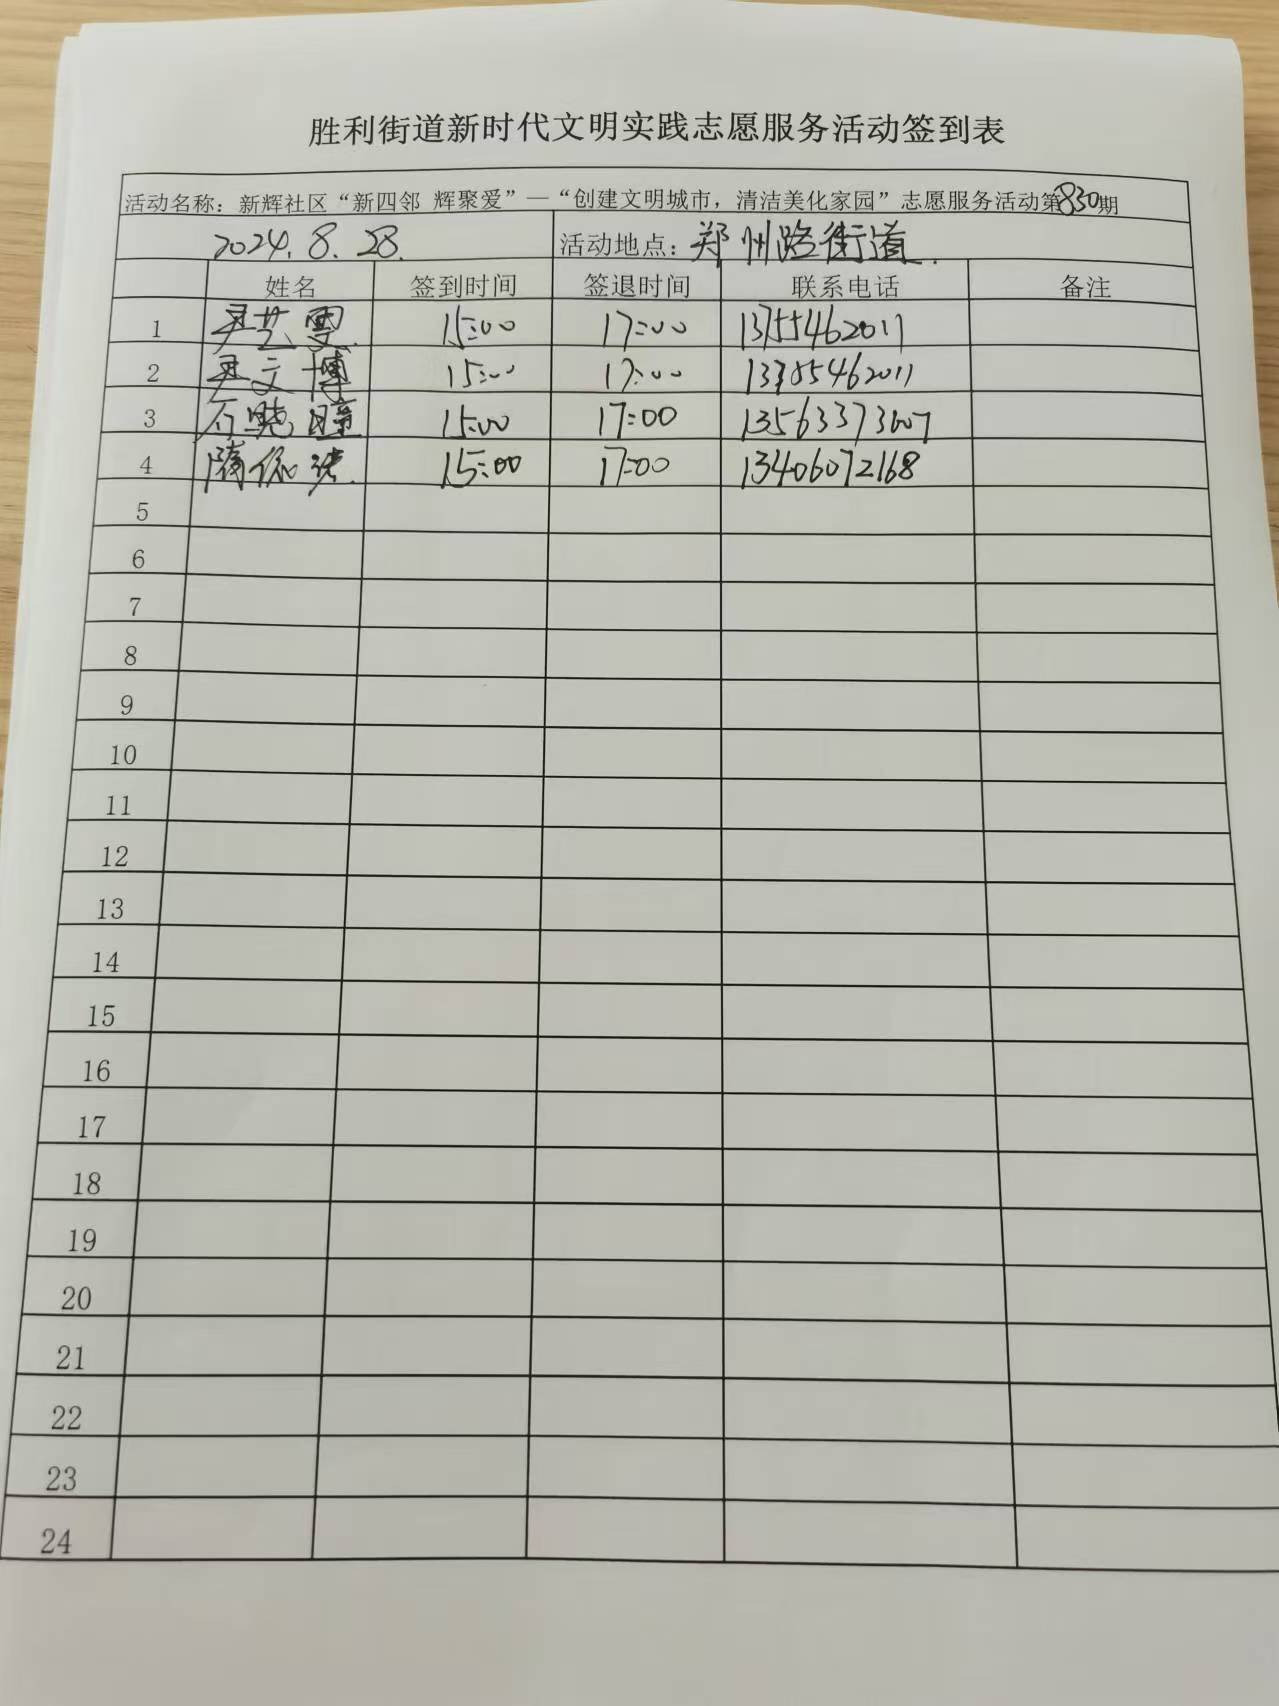 胜利街道新时代文明实践志愿服务活动签到表
活动名称：新辉社区“新四邻 辉聚爱”—“创建文明城市，清洁美化家园”志愿服务活动第830期
2024.8.28. 活动地点：郑州路街道.
姓名 签到时间 签退时间 联系电话 备注
1 尹艺雯 15:00 17:00 13755462011
2 尹文博 15:00 17:00 13385462011
3 石晓瞳 15:00 17:00 13563373607
4 隋 15:00 17:00 13406072168
5
6
7
8
9
10
11
12
13
14
15
16
17
18
19
20
21
22
23
24